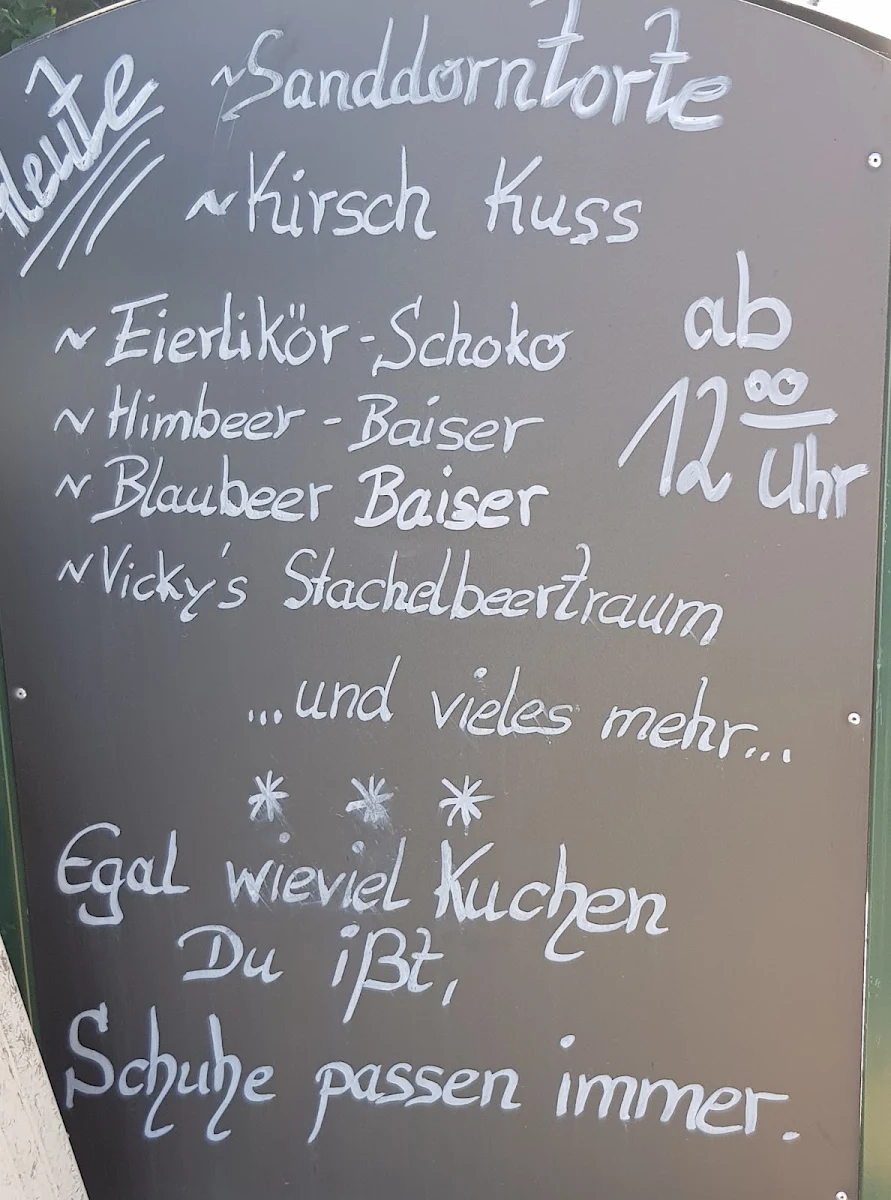 Heute
~Sanddorntorte
~Kirsch Kuss
~Eierlikör-Schoko
~Himbeer-Baiser
~Blaubeer Baiser
~Vicky's Stachelbeertraum
ab
12⁰⁰ Uhr
...und vieles mehr...
* * *
Egal wieviel Kuchen
Du ißt,
Schuhe passen immer.